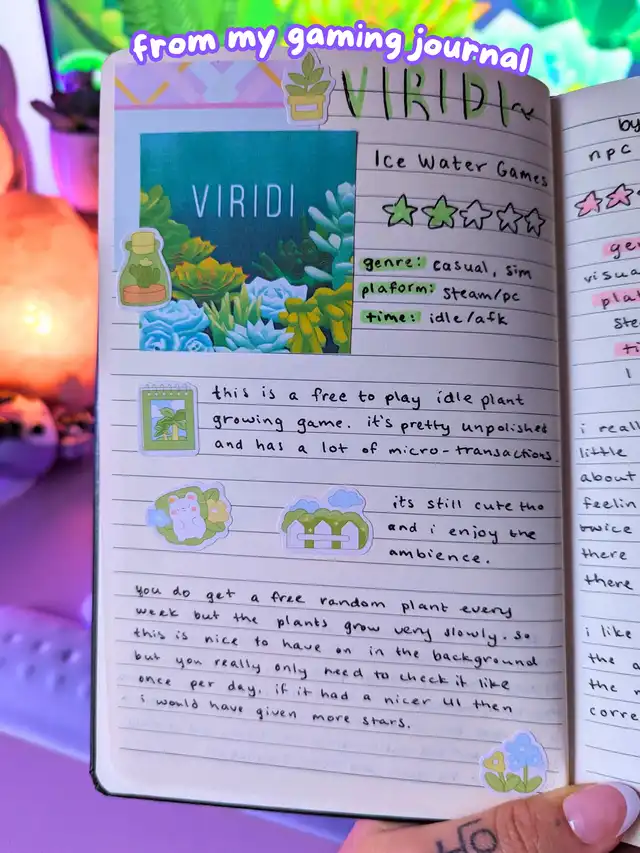 from my gaming journal
VIRIDI~
VIRIDI
Ice Water Games
genre: casual, sim
plaform: steam/pc
time: idle/afk
this is a free to play idle plant
growing game. it's pretty unpolished
and has a lot of micro-transactions.
its still cute tho
and i enjoy the
ambience.
you do get a free random plant every
week but the plants grow very slowly. so
this is nice to have on in the background
but you really only need to check it like
once per day. if it had a nicer UI then
i would have given more stars.
by
npc
i
little
about
twice
there
there
i like
the
the